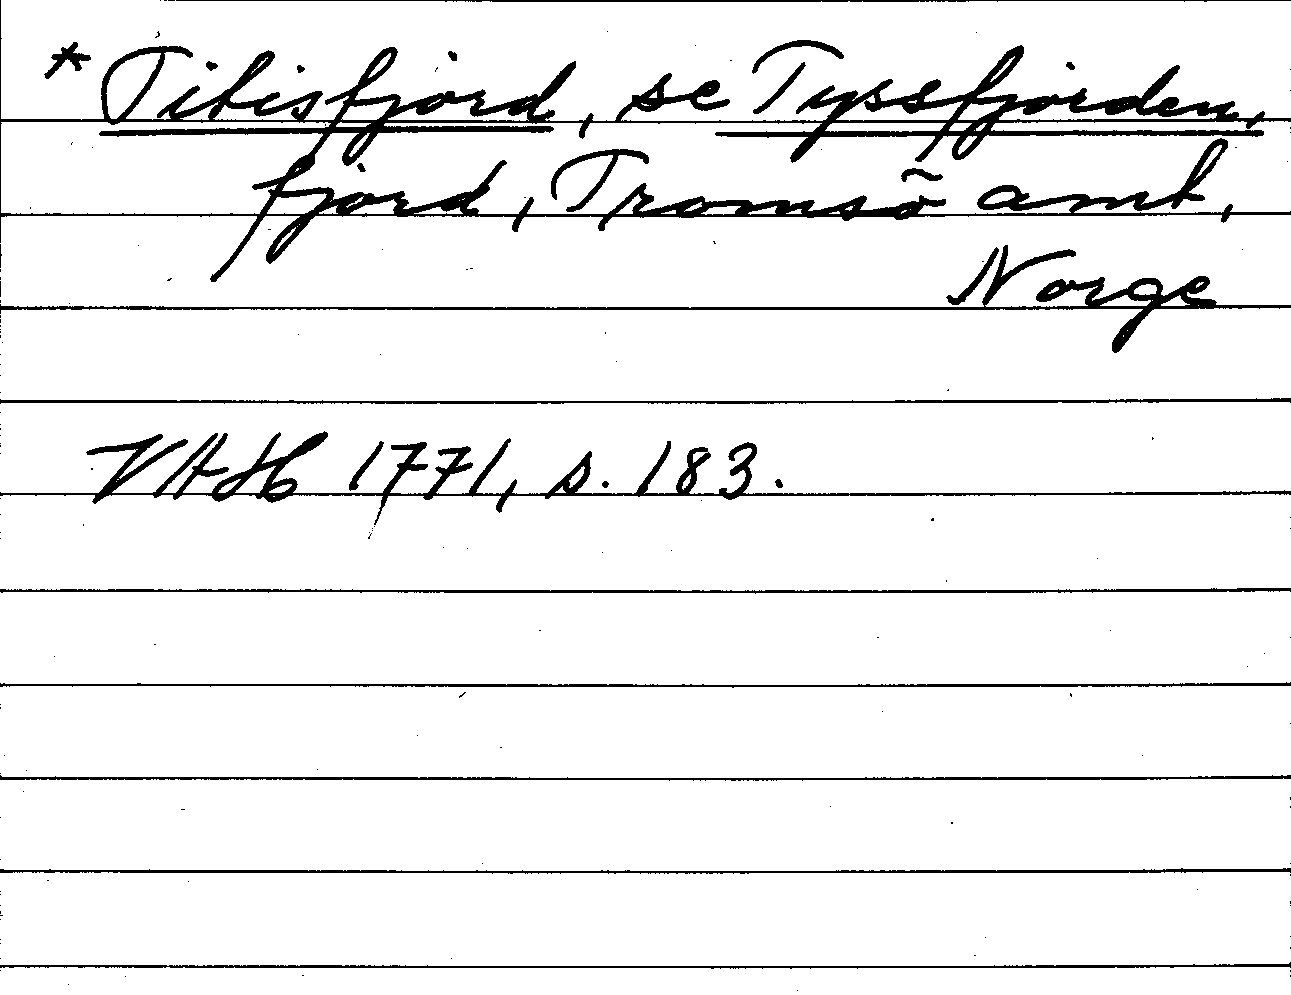 * Titisfjord, se Tyssfjorden,
fjord, Tromsö amt,
Norge
VAH 1771, s. 183.